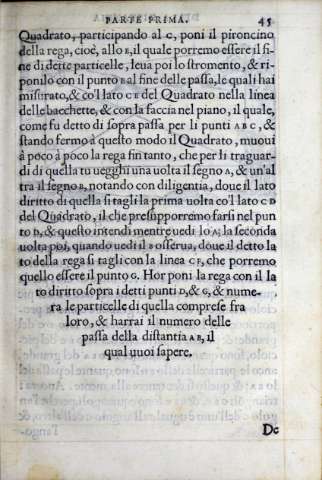 PARTE PRIMA. 45
Quadrato, participando al C, poni il pironcino
della rega, cioè, allo E, il quale porremo essere il fi-
ne di dette particelle, leua poi lo stromento, & ri-
ponilo con il punto B al fine delle passa, le quali hai
misurato, & co'l lato C E del Quadrato nella linea
delle bacchette, & con la faccia nel piano, il quale,
come fu detto di sopra passa per li punti A B C, &
stando fermo à questo modo il Quadrato, muoui
à poco à poco la rega fin tanto, che per li traguar-
di di quella tu uegghi una uolta il segno A, & un'al
tra il segno B, notando con diligentia, doue il lato
diritto di quella si tagli la prima uolta co'l lato C D
del Quadrato, il che presupporremo farsi nel pun
to D, & questo intendi mentre uedi lo A; la seconda
uolta poi, quando uedi il B osserua, doue il detto la
to della rega si tagli con la linea C F, che porremo
quello essere il punto G. Hor poni la rega con il la
to diritto sopra i detti punti D, & G, & nume-
ra le particelle di quella comprese fra
loro, & harrai il numero delle
passa della distantia A B, il
qual uuoi sapere.
De